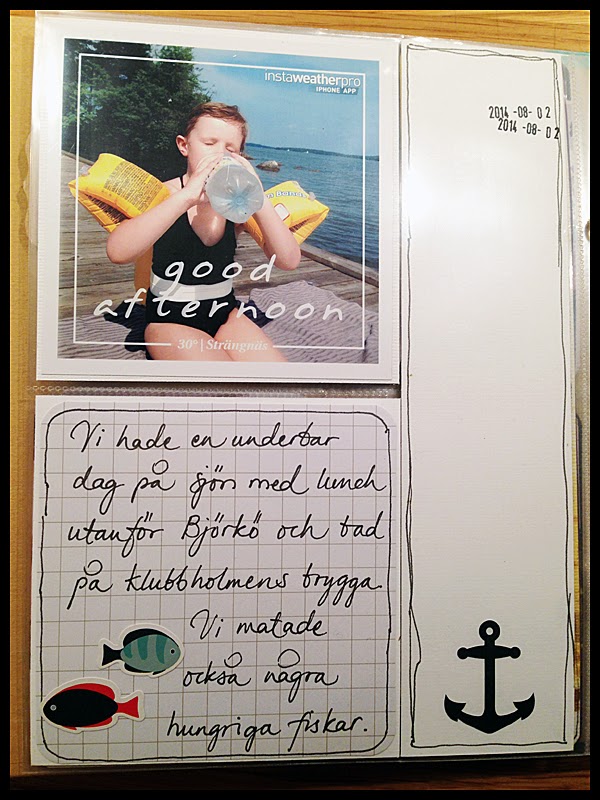 instaweatherpro
IPHONE APP
good
afternoon
30° | Strängnäs
2014-08-02
2014-08-02
Vi hade en underbar
dag på sjön med lunch
utanför Björkö och bad
på klubbholmens brygga.
Vi matade
också några
hungriga fiskar.